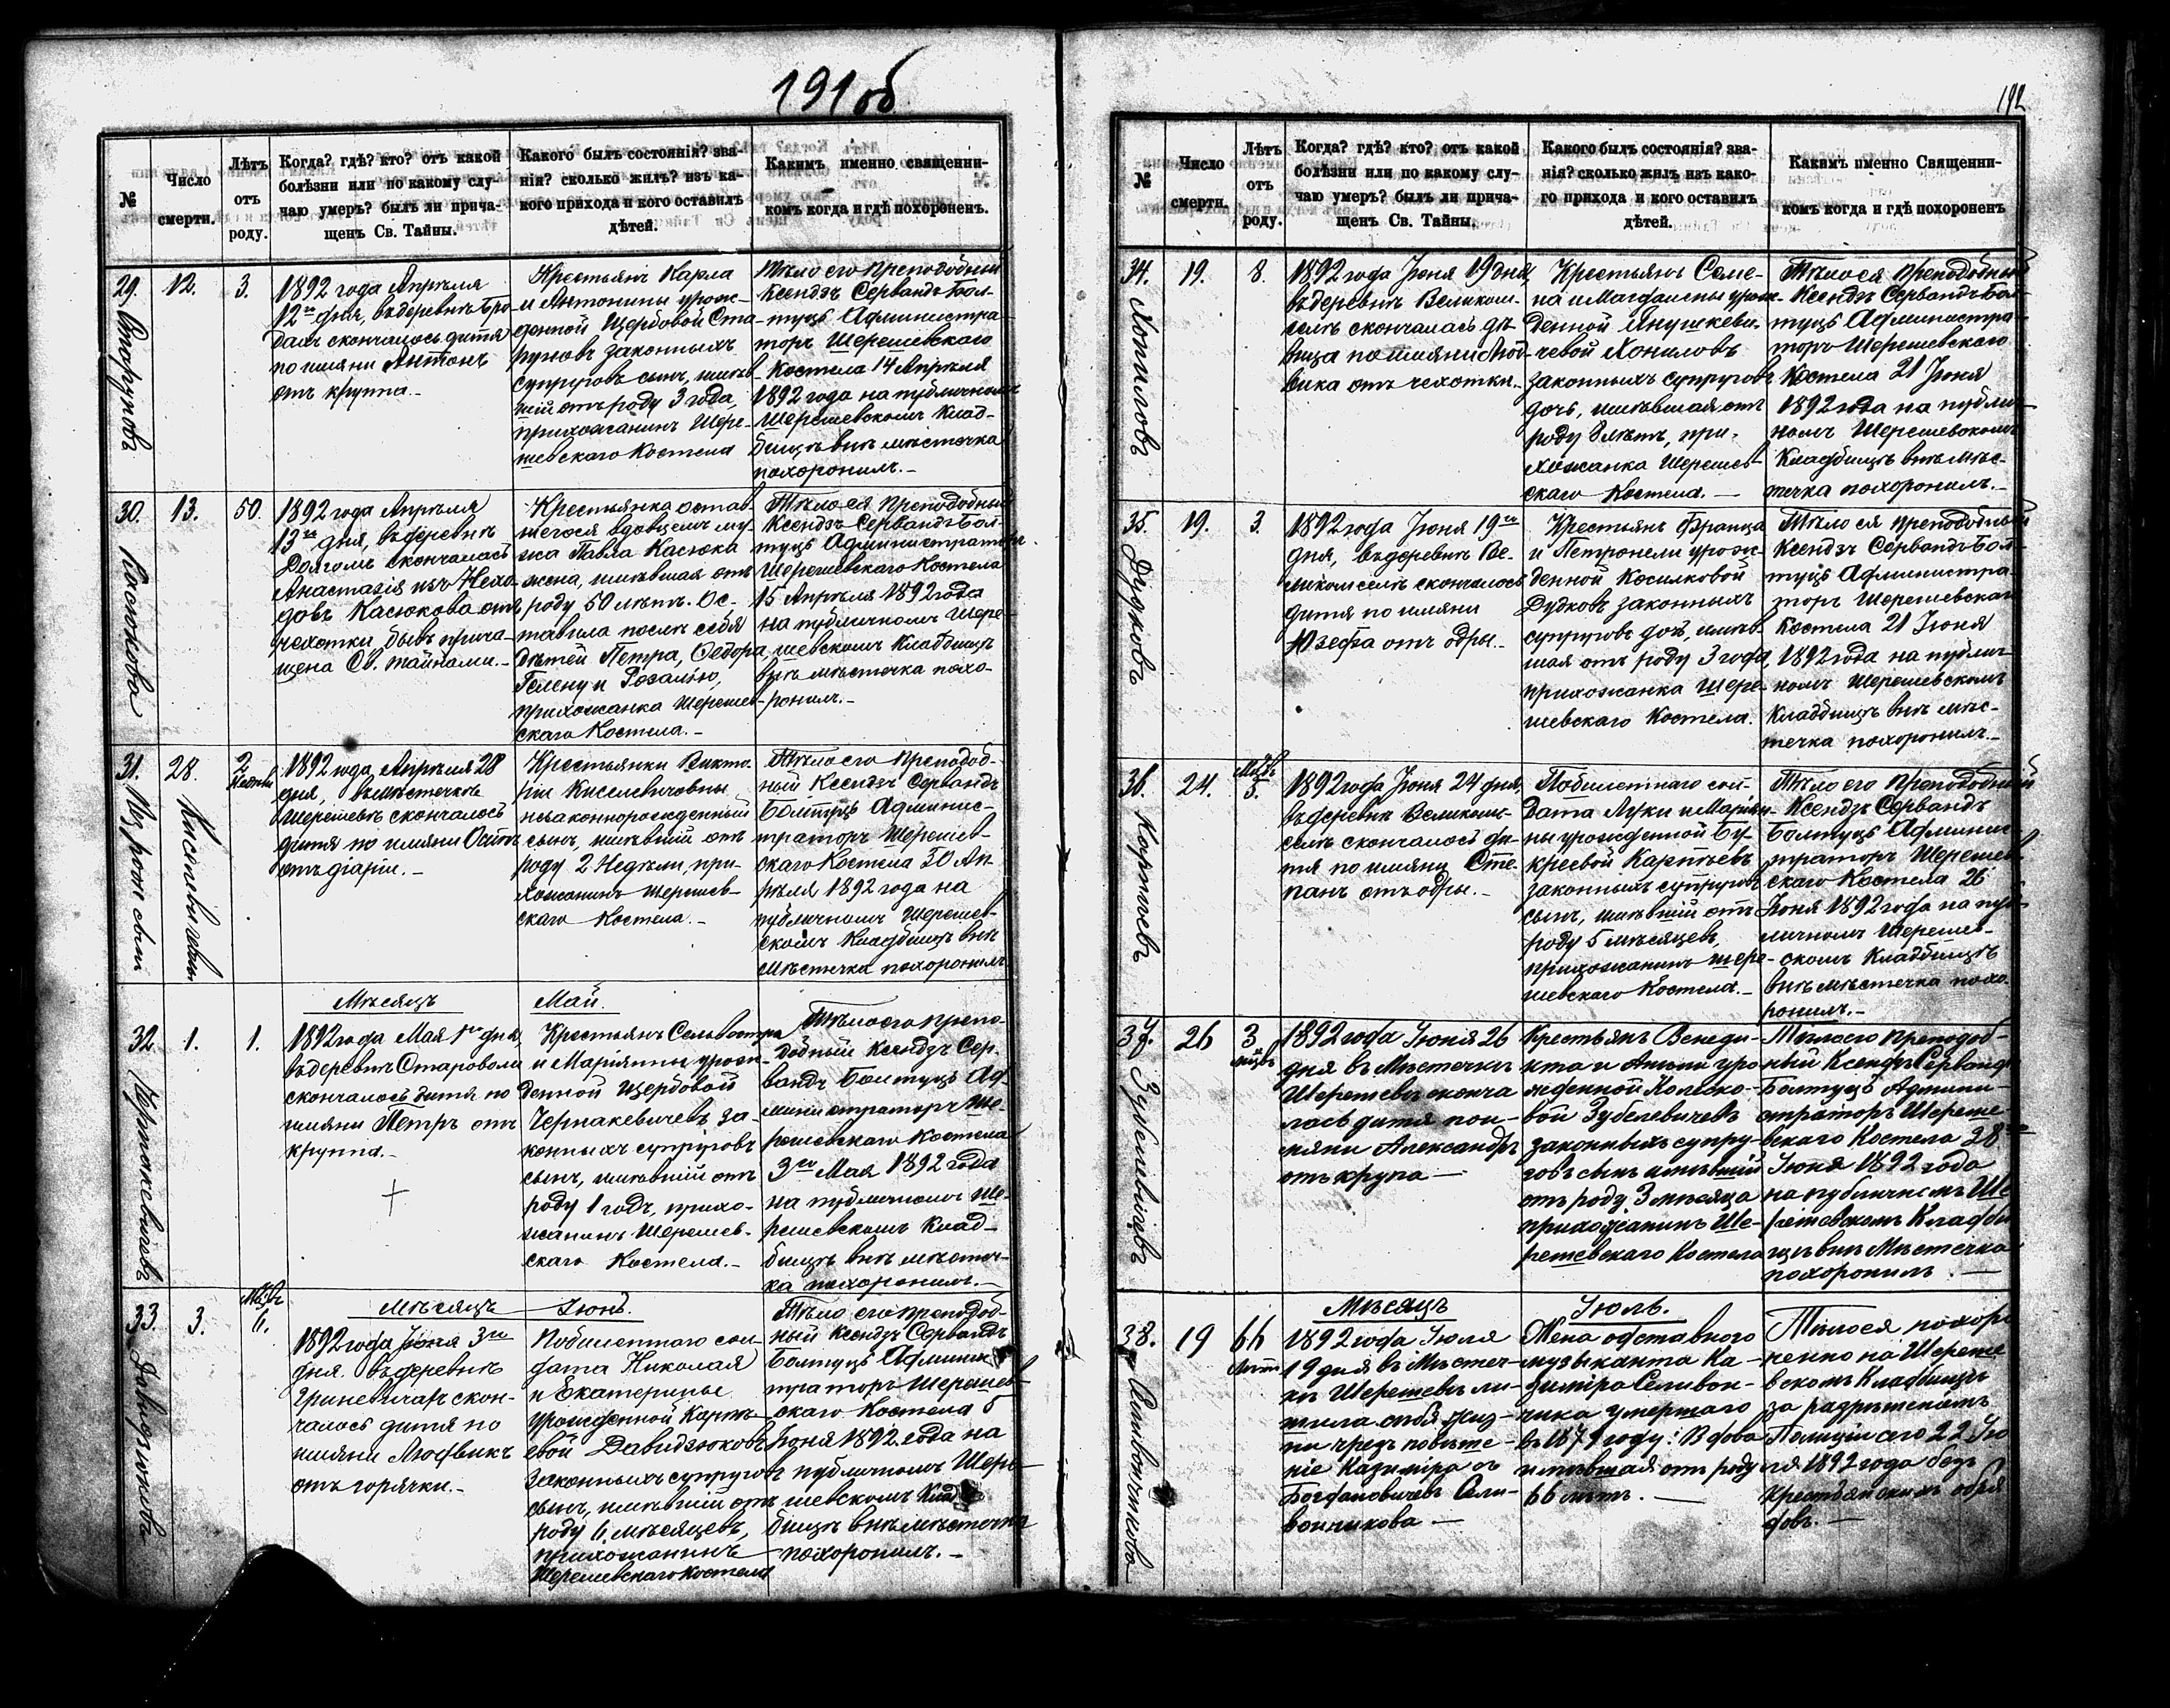 191 об.
№
Число
смерти.
Лѣтъ
отъ
роду.
Когда? гдѣ? кто? отъ какой
болѣзни или по какому слу-
чаю умеръ? былъ ли прича-
щенъ Св. Тайны.
Какого былъ состоянія? зва-
нія? сколько жилъ? изъ ка-
кого прихода и кого оставилъ
дѣтей.
Какимъ именно священни-
комъ когда и гдѣ похороненъ.
29.
12.
3.
1892 года Апрѣля
12го дня, въ деревнѣ Бро-
дахъ скончалось дитя
по имяни Антонъ
отъ круппа.-
Крестьянъ Карла
и Антонины урож-
денной Щербовой Ста-
руновъ законныхъ
супруговъ сынъ, имѣв-
шій отъ роду 3 года,
прихожанинъ Шере-
шевскаго Костела
Тѣло его Преподобный
Ксендзъ Сервандъ Бол-
туць Администра-
торъ Шерешевскаго
Костела 14 Апрѣля
1892 года на публичномъ
Шерешевскомъ Клад-
бищѣ внѣ мѣстечка
похоронилъ.-
30.
Касюкова
13.
50.
1892 года Апрѣля
13го дня, въ деревнѣ
Долгомъ скончалась
Анастазія изъ Нехо-
довъ Касюкова отъ
чахотки бывъ прича-
щена Св. тайнами.-
Крестьянка остав-
шегося вдовцемъ му-
жа Павла Касюка
жена, имѣвшая отъ
роду 50 лѣтъ. Ос-
тавила послѣ себя
дѣтей Петра, Ѳедора,
Гелену и Розалію,
прихожанка Шерешев-
скаго Костела.-
Тѣло ея Преподобный
Ксендзъ Сервандъ Бол-
туць Администраторъ
Шерешевскаго Костела
15 Апрѣля 1892 года
на публичномъ Шере-
шевскомъ Кладбищѣ
внѣ мѣстечка похо-
ронилъ.-
31.
Киселевичевъ
28.
2
Недѣли
1892 года Апрѣля 28
дня, въ мѣстечкѣ
Шерешевѣ скончалось
дитя по имяни Осипъ
отъ діаріи.-
Крестьянки Викто-
ріи Киселевичовны
незаконнорожденный
сынъ, имѣвшій отъ
роду 2 Недѣли, при-
хожанинъ Шерешев-
скаго Костела.-
Тѣло его Преподоб-
ный Ксендзъ Сервандъ
Болтуць Админис-
траторъ Шерешев-
скаго Костела 30 Ап-
рѣля 1892 года на
публичномъ Шерешев-
скомъ Кладбищѣ внѣ
Мѣстечка похоронилъ
Мѣсяцъ Май.
32
1.
1.
1892 года Мая 1го дня,
въ деревнѣ Староволи
скончалось дитя по
имяни Петръ отъ
круппа.-
Крестьянъ Сельвестра
и Маріянны урож-
денной Щербовой
Чернакевичевъ за-
конныхъ супруговъ
сынъ, имѣвшій отъ
роду 1 годъ, прихо-
жанинъ Шерешев-
скаго Костела.-
Тѣло его Препо-
добный Ксендзъ Сер-
вандъ Болтуць Ад-
министраторъ Ше-
решевскаго Костела
3го Мая 1892 года
на публичномъ Ше-
решевскомъ Клад-
бищѣ внѣ мѣстеч-
ка похоронилъ.-
Мѣсяцъ Іюнь.
33.
Давидзюковъ
3.
6.
1892 года Іюня 3го
дня. въ деревнѣ
Гриневичахъ скон-
чалось дитя по
имяни Людвикъ
отъ горячки.-
Побилетнаго сол-
дата Николая
и Екатерины
урожденной Карпѣ-
евой Давидзюковъ
законныхъ супруговъ
сынъ, имѣвшій отъ
роду 6 мѣсяцевъ,
прихожанинъ
Шерешевскаго Костела
Тѣло его Преподоб-
ный Ксендзъ Сервандъ
Болтуць Админис-
траторъ Шерешев-
скаго Костела 5
Іюня 1892 года на
публичномъ Шере-
шевскомъ Клад-
бищѣ внѣ мѣстечка
похоронилъ.-
192
№
Число
смерти.
Лѣтъ
отъ
роду.
Когда? гдѣ? кто? отъ какой
болѣзни или по какому слу-
чаю умеръ? былъ ли прича-
щенъ Св. Тайны.
Какого былъ состоянія? зва-
нія? сколько жилъ изъ како-
го прихода и кого оставилъ
дѣтей.
Какимъ именно Священни-
комъ когда и гдѣ похороненъ
34.
Хониловъ
19.
8.
1892 года Іюня 19 дня,
въ деревнѣ Великом-
селѣ скончалась дѣ-
вица по имяни Люд-
вика отъ чахотки.-
Крестьянъ Семе-
на и Магдалены урож-
денной Янушкеви-
чевой Хониловъ
законныхъ супруговъ
дочь, имѣвшая отъ
роду 8 лѣтъ, при-
хожанка Шерешев-
скаго Костела.-
Тѣло ея Преподобный
Ксендзъ Сервандъ Бол-
туць Администра-
торъ Шерешевскаго
Костела 21 Іюня
1892 года на публич-
номъ Шерешевскомъ
Кладбищѣ внѣ мѣс-
течка похоронилъ.-
35.
Дудковъ
19.
3.
1892 года Іюня 19го
дня, въ деревнѣ Ве-
ликомселѣ скончалось
дитя по имяни
Юзефа отъ одры.-
Крестьянъ Франца
и Петронели урож-
денной Косилковой
Дудковъ законныхъ
супруговъ дочь, имѣв-
шая отъ роду 3 года,
прихожанка Шере-
шевскаго Костела.
Тѣло ея Преподобный
Ксендзъ Сервандъ Бол-
туць Администра-
торъ Шерешевскаго
Костела 21 Іюня
1892 года на публич-
номъ Шерешевскомъ
Кладбищѣ внѣ мѣс-
течка похоронилъ.-
36.
Карпѣевъ
24.
5.
1892 года Іюня 24 дня,
въ деревнѣ Великом-
селѣ скончалось ди-
тя по имяни Сте-
панъ отъ одры.-
Побилетнаго сол-
дата Луки и Маріян-
ны урожденной Бу-
креевой Карпѣевъ
законныхъ супруговъ
сынъ, имѣвшій отъ
роду 5 мѣсяцевъ,
прихожанинъ Шере-
шевскаго Костела.-
Тѣло его Преподобный
Ксендзъ Сервандъ
Болтуць Админис-
траторъ Шерешев-
скаго Костела 26
Іюня 1892 года на пуб-
личномъ Шерешев-
скомъ Кладбищѣ
внѣ мѣстечка похо-
ронилъ.-
37.
Зубелевичевъ
26
3
мѣсцъ
1892 года Іюня 26
дня въ Мѣстечкѣ
Шерешевѣ сконча
лась дитя по и-
мяни Александръ
отъ крупа -
Крестьянъ Венеди-
кта и Анны уро
жденной
Зубелевичевъ
законныхъ супру-
говъ сынъ имѣвшій
отъ роду 3 мѣсяца
прихожанинъ Ше-
решевскаго Костела
Тѣло его Преподоб-
ный Ксендзъ Сервандъ
Болтуць Админи-
страторъ Шереше
вскаго Костела 28го
Іюня 1892 года
на публичномъ Ше
решевскомъ Кладби
щѣ внѣ Мѣстечка
похоронилъ. -
Мѣсяцъ Іюль.
38.
Селивончикова
19
66
лѣтъ
1892 года Іюля
19 дня въ Мѣстеч-
кѣ Шерешевѣ ли-
шила себя жиз-
ни чрезъ повѣше-
ніе Казиміра съ
Богдановичевъ Сели-
вончикова -
Жена отставного
музыканта Ка-
зиміра Селивон-
чика умершаго
въ 1879 году: Вдова
имѣвшая отъ роду
66 лѣтъ. -
Тѣло ея похоро
ненно на Шереше
вскомъ Кладбищѣ
за разрѣшеніемъ
Полиціи сего 22 Ію
ля 1892 года безъ
Христіянскихъ обря
довъ. -